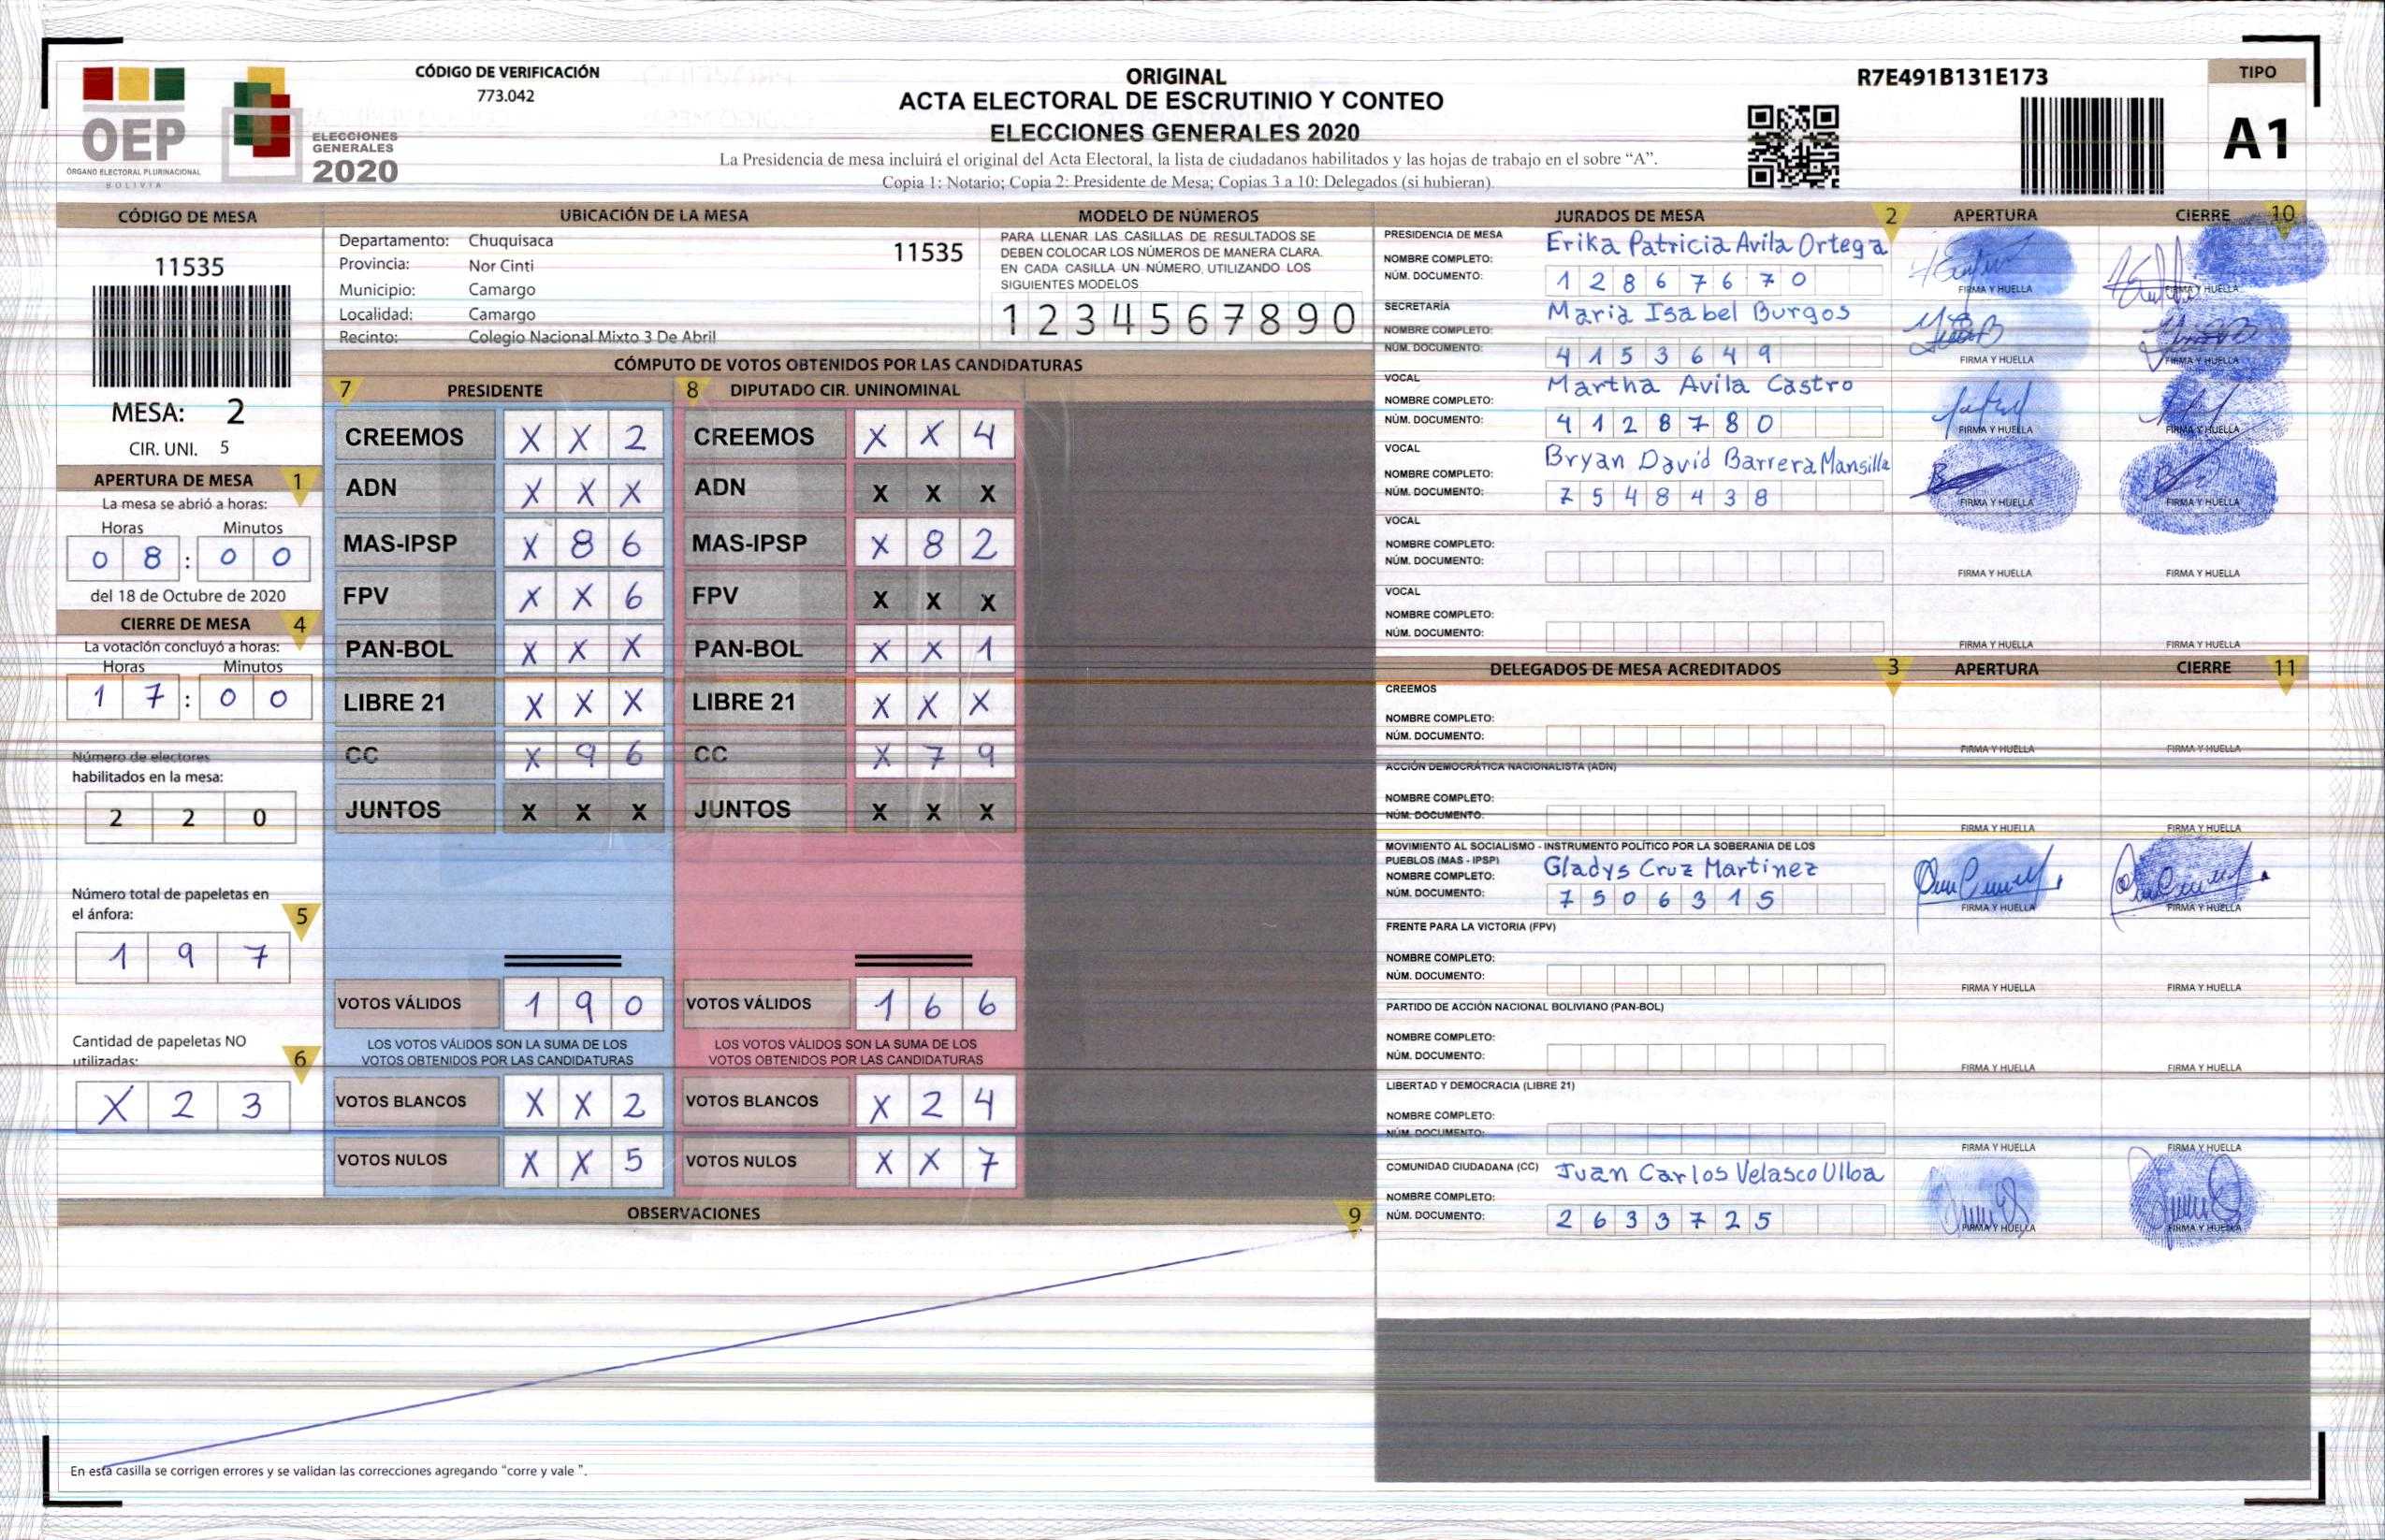 OEP
ÓRGANO ELECTORAL PLURINACIONAL
BOLIVIA
ELECCIONES
GENERALES
2020
CÓDIGO DE VERIFICACIÓN
773.042
ORIGINAL
ACTA ELECTORAL DE ESCRUTINIO Y CONTEO
ELECCIONES GENERALES 2020
La Presidencia de mesa incluirá el original del Acta Electoral, la lista de ciudadanos habilitados y las hojas de trabajo en el sobre “A”.
Copia 1: Notario; Copia 2: Presidente de Mesa; Copias 3 a 10: Delegados (si hubieran)
R7E491B131E173
TIPO
A1
CÓDIGO DE MESA
11535
MESA: 2
CIR. UNI. 5
APERTURA DE MESA 1
La mesa se abrió a horas:
Horas Minutos
0 8 : 0 0
del 18 de Octubre de 2020
CIERRE DE MESA 4
La votación concluyó a horas:
Horas Minutos
1 7 : 0 0
Número de electores
habilitados en la mesa:
2 2 0
Número total de papeletas en
el ánfora: 5
1 9 7
Cantidad de papeletas NO
utilizadas: 6
X 2 3
UBICACIÓN DE LA MESA
Departamento: Chuquisaca 11535
Provincia: Nor Cinti
Municipio: Camargo
Localidad: Camargo
Recinto: Colegio Nacional Mixto 3 De Abril
MODELO DE NÚMEROS
PARA LLENAR LAS CASILLAS DE RESULTADOS SE
DEBEN COLOCAR LOS NÚMEROS DE MANERA CLARA.
EN CADA CASILLA UN NÚMERO, UTILIZANDO LOS
SIGUIENTES MODELOS
1 2 3 4 5 6 7 8 9 0
CÓMPUTO DE VOTOS OBTENIDOS POR LAS CANDIDATURAS
7 PRESIDENTE 8 DIPUTADO CIR. UNINOMINAL
CREEMOS X X 2 CREEMOS X X 4
ADN X X X ADN X X X
MAS-IPSP X 8 6 MAS-IPSP X 8 2
FPV X X 6 FPV X X X
PAN-BOL X X X PAN-BOL X X 1
LIBRE 21 X X X LIBRE 21 X X X
CC X 9 6 CC X 7 9
JUNTOS X X X JUNTOS X X X
VOTOS VÁLIDOS 1 9 0 VOTOS VÁLIDOS 1 6 6
LOS VOTOS VÁLIDOS SON LA SUMA DE LOS LOS VOTOS VÁLIDOS SON LA SUMA DE LOS
VOTOS OBTENIDOS POR LAS CANDIDATURAS VOTOS OBTENIDOS POR LAS CANDIDATURAS
VOTOS BLANCOS X X 2 VOTOS BLANCOS X 2 4
VOTOS NULOS X X 5 VOTOS NULOS X X 7
OBSERVACIONES 9
En esta casilla se corrigen errores y se validan las correcciones agregando “corre y vale ”.
JURADOS DE MESA 2 APERTURA CIERRE 10
PRESIDENCIA DE MESA
NOMBRE COMPLETO: Erika Patricia Avila Ortega
NÚM. DOCUMENTO: 1 2 8 6 7 6 7 0
FIRMA Y HUELLA FIRMA Y HUELLA
SECRETARÍA
NOMBRE COMPLETO: Maria Isabel Burgos
NÚM. DOCUMENTO: 4 1 5 3 6 4 9
FIRMA Y HUELLA FIRMA Y HUELLA
VOCAL
NOMBRE COMPLETO: Martha Avila Castro
NÚM. DOCUMENTO: 4 1 2 8 7 8 0
FIRMA Y HUELLA FIRMA Y HUELLA
VOCAL
NOMBRE COMPLETO: Bryan David Barrera Mansilla
NÚM. DOCUMENTO: 7 5 4 8 4 3 8
FIRMA Y HUELLA FIRMA Y HUELLA
VOCAL
NOMBRE COMPLETO:
NÚM. DOCUMENTO:
FIRMA Y HUELLA FIRMA Y HUELLA
VOCAL
NOMBRE COMPLETO:
NÚM. DOCUMENTO:
FIRMA Y HUELLA FIRMA Y HUELLA
DELEGADOS DE MESA ACREDITADOS 3 APERTURA CIERRE 11
CREEMOS
NOMBRE COMPLETO:
NÚM. DOCUMENTO:
FIRMA Y HUELLA FIRMA Y HUELLA
ACCIÓN DEMOCRÁTICA NACIONALISTA (ADN)
NOMBRE COMPLETO:
NÚM. DOCUMENTO:
FIRMA Y HUELLA FIRMA Y HUELLA
MOVIMIENTO AL SOCIALISMO - INSTRUMENTO POLÍTICO POR LA SOBERANIA DE LOS
PUEBLOS (MAS - IPSP)
NOMBRE COMPLETO: Gladys Cruz Martinez
NÚM. DOCUMENTO: 7 5 0 6 3 1 5
FIRMA Y HUELLA FIRMA Y HUELLA
FRENTE PARA LA VICTORIA (FPV)
NOMBRE COMPLETO:
NÚM. DOCUMENTO:
FIRMA Y HUELLA FIRMA Y HUELLA
PARTIDO DE ACCIÓN NACIONAL BOLIVIANO (PAN-BOL)
NOMBRE COMPLETO:
NÚM. DOCUMENTO:
FIRMA Y HUELLA FIRMA Y HUELLA
LIBERTAD Y DEMOCRACIA (LIBRE 21)
NOMBRE COMPLETO:
NÚM. DOCUMENTO:
FIRMA Y HUELLA FIRMA Y HUELLA
COMUNIDAD CIUDADANA (CC)
NOMBRE COMPLETO: Juan Carlos Velasco Ulloa
NÚM. DOCUMENTO: 2 6 3 3 7 2 5
FIRMA Y HUELLA FIRMA Y HUELLA